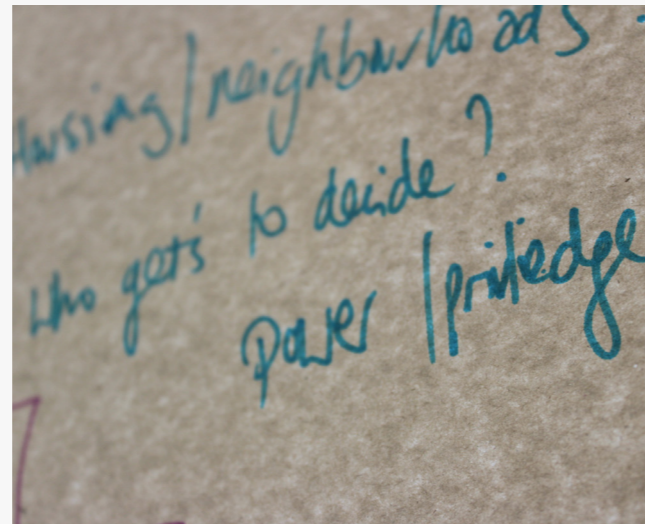 Housing/neighbourhoads -
who get's to decide?
Power/priviledge